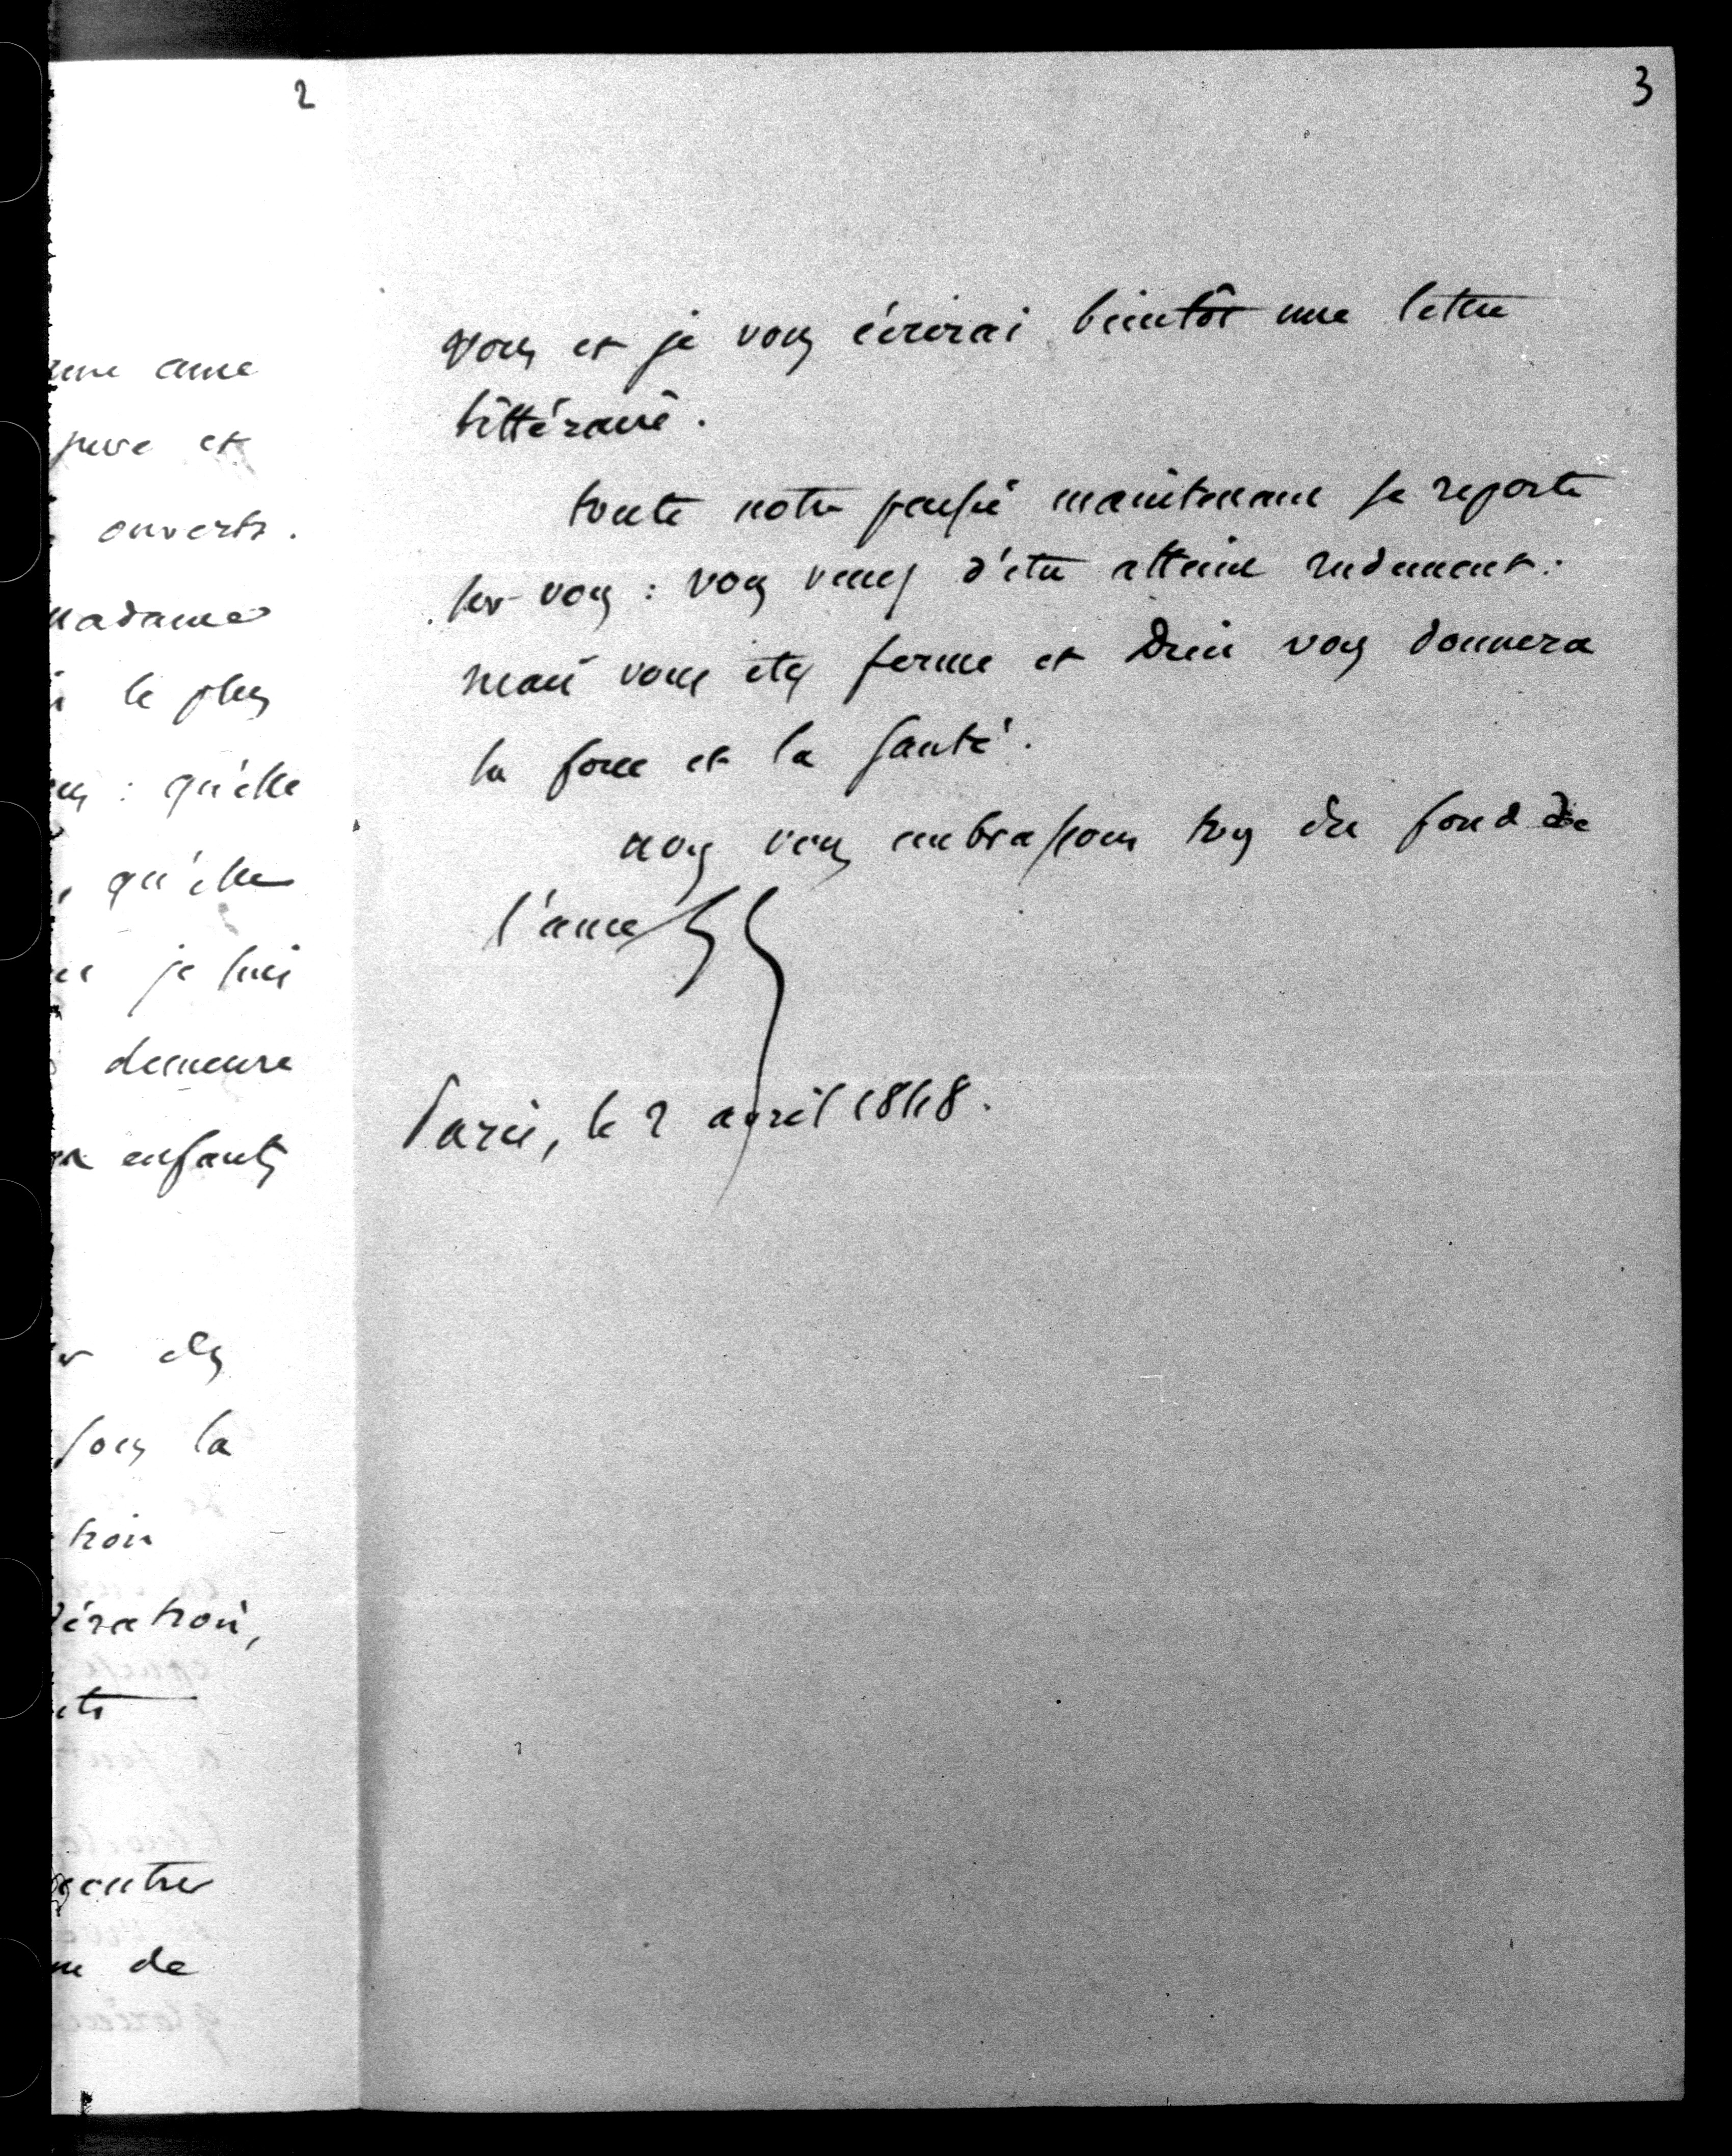 2
une ame
pure et
ouverts.
madame
le plus
: qu'elle
, qu'elle
je suis
demeure
enfants
des
sous la
tion
dération,
de
3
vous et je vous écrirai bientôt une lettre
littéraire.
toute notre pensée maintenant se reporte
sur vous : vous venez d'etre atteint rudement :
mais vous etes ferme et Dieu vous donnera
la force et la santé.
nous vous embrassons tous du fond de
l'ame
Paris, le 2 avril 1848.